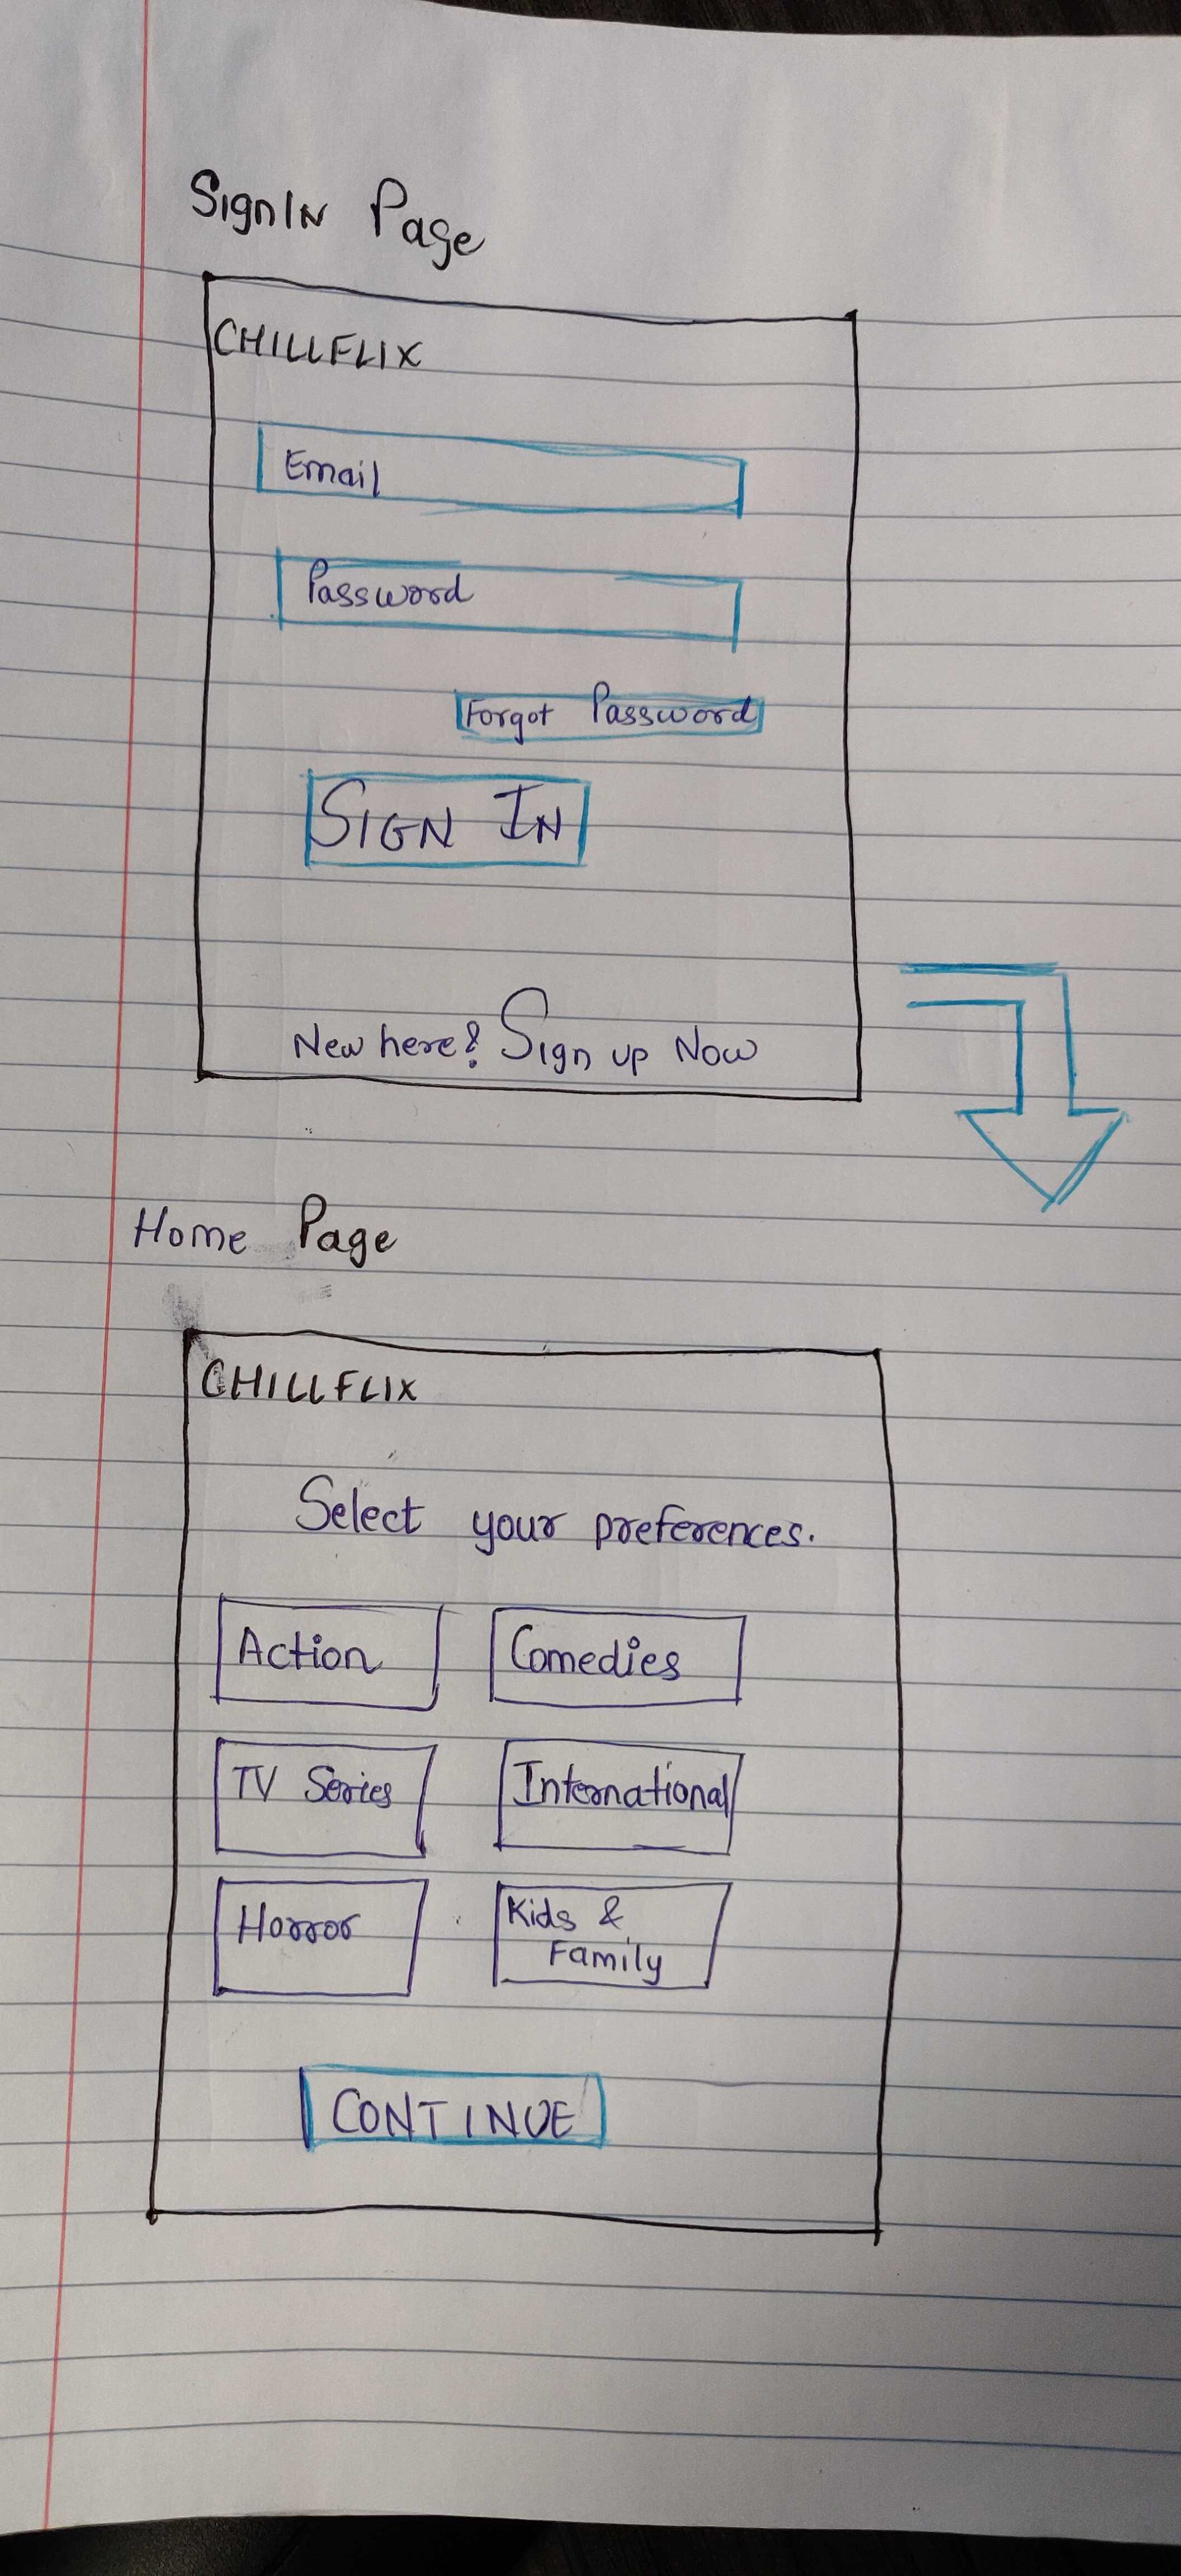 SignIN Page
CHILLFLIX
Email
Password
Forgot Password
SIGN IN
New here? Sign up Now
Home Page
CHILLFLIX
Select your preferences.
Action
Comedies
TV Series
International
Horror
Kids &
Family
CONTINUE